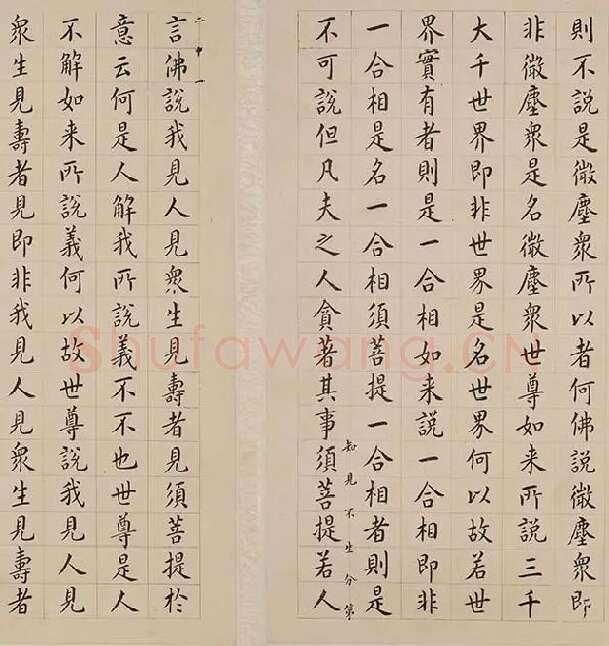 則不說是微塵衆所以者何佛說微塵衆即
非微塵衆是名微塵衆世尊如来所說三千
大千世界即非世界是名世界何以故若世
界實有者則是一合相如来說一合相即非
一合相是名一合相須菩提一合相者則是
知見不生分第
不可說但凡夫之人貪著其事須菩提若人
三十一
言佛說我見人見衆生見壽者見須菩提於
意云何是人解我所說義不不也世尊是人
不解如来所說義何以故世尊說我見人見
衆生見壽者見即非我見人見衆生見壽者
Shufawang.CN